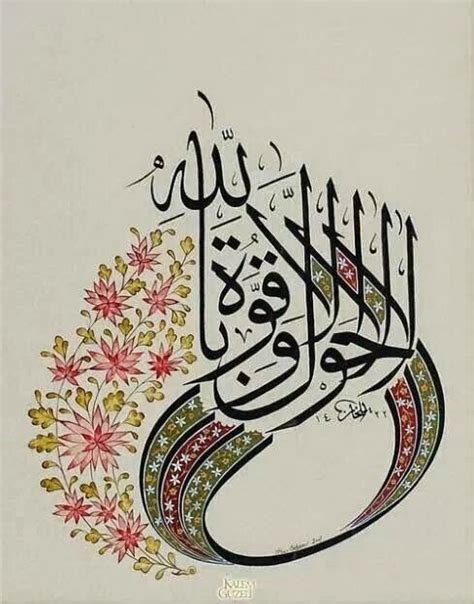 لا حَوْلَ وَلا قُوَّةَ الَّا بِاللّٰهِ
١٤٢٢
KALEM GÜZELİ